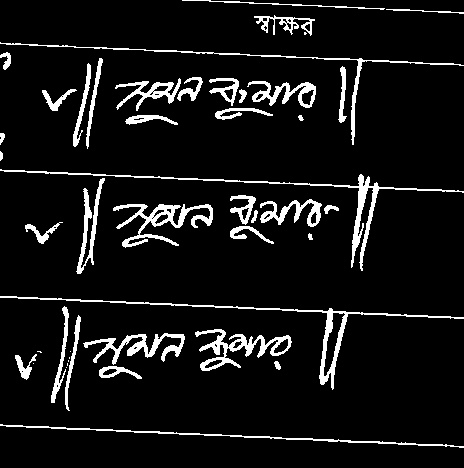 স্বাক্ষর
সুমন কুমার
সুমন কুমার
সুমন কুমার